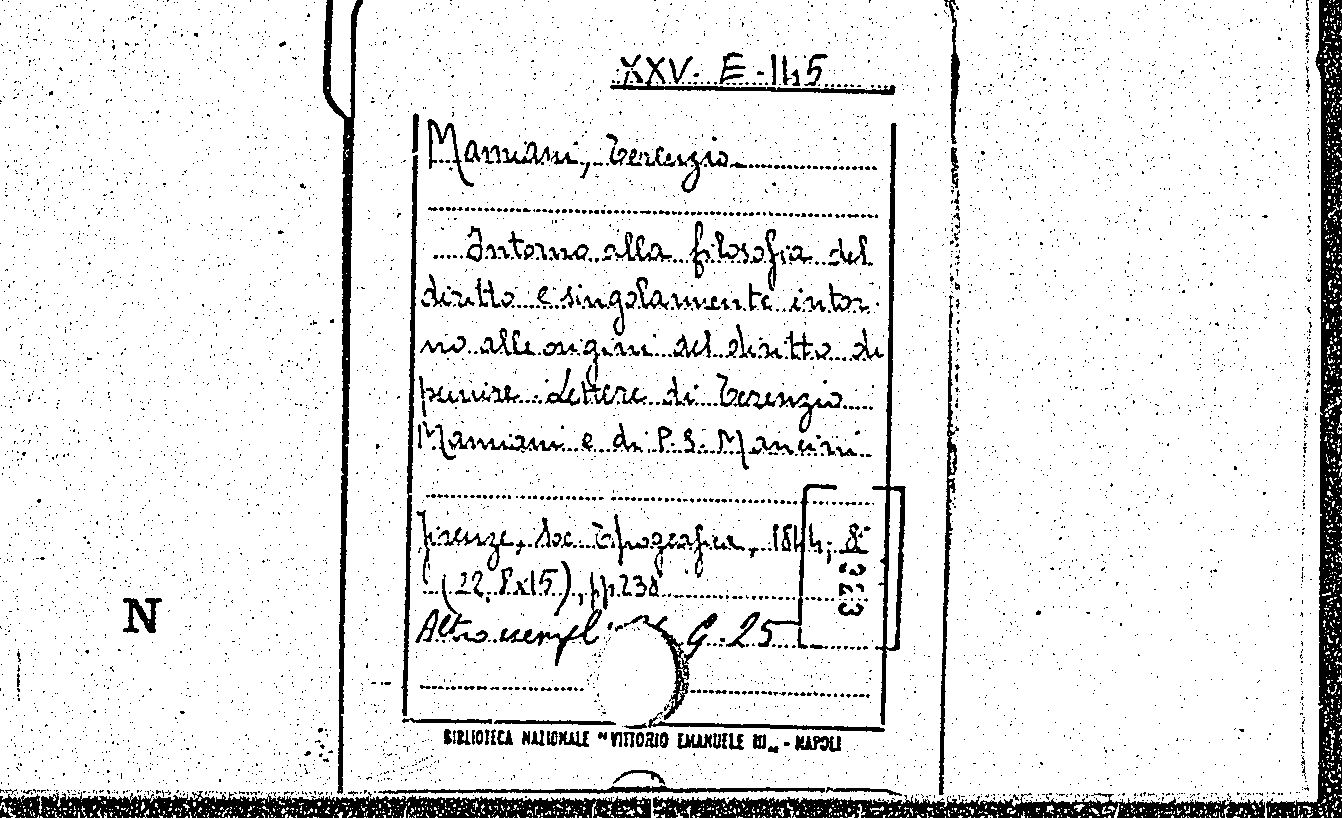 XXV. E. 145
Mamiani, Terenzio
Intorno alla filosofia del
diritto e singolarmente intor-
no alle origini del diritto di
punire. Lettere di Terenzio
Mamiani e di P. S. Mancini
Firenze, Soc. Tipografica, 1844; 8°
(22,8x15), pp. 238
Altro esempl. G. 25
N
BIBLIOTECA NAZIONALE "VITTORIO EMANUELE III„ - NAPOLI